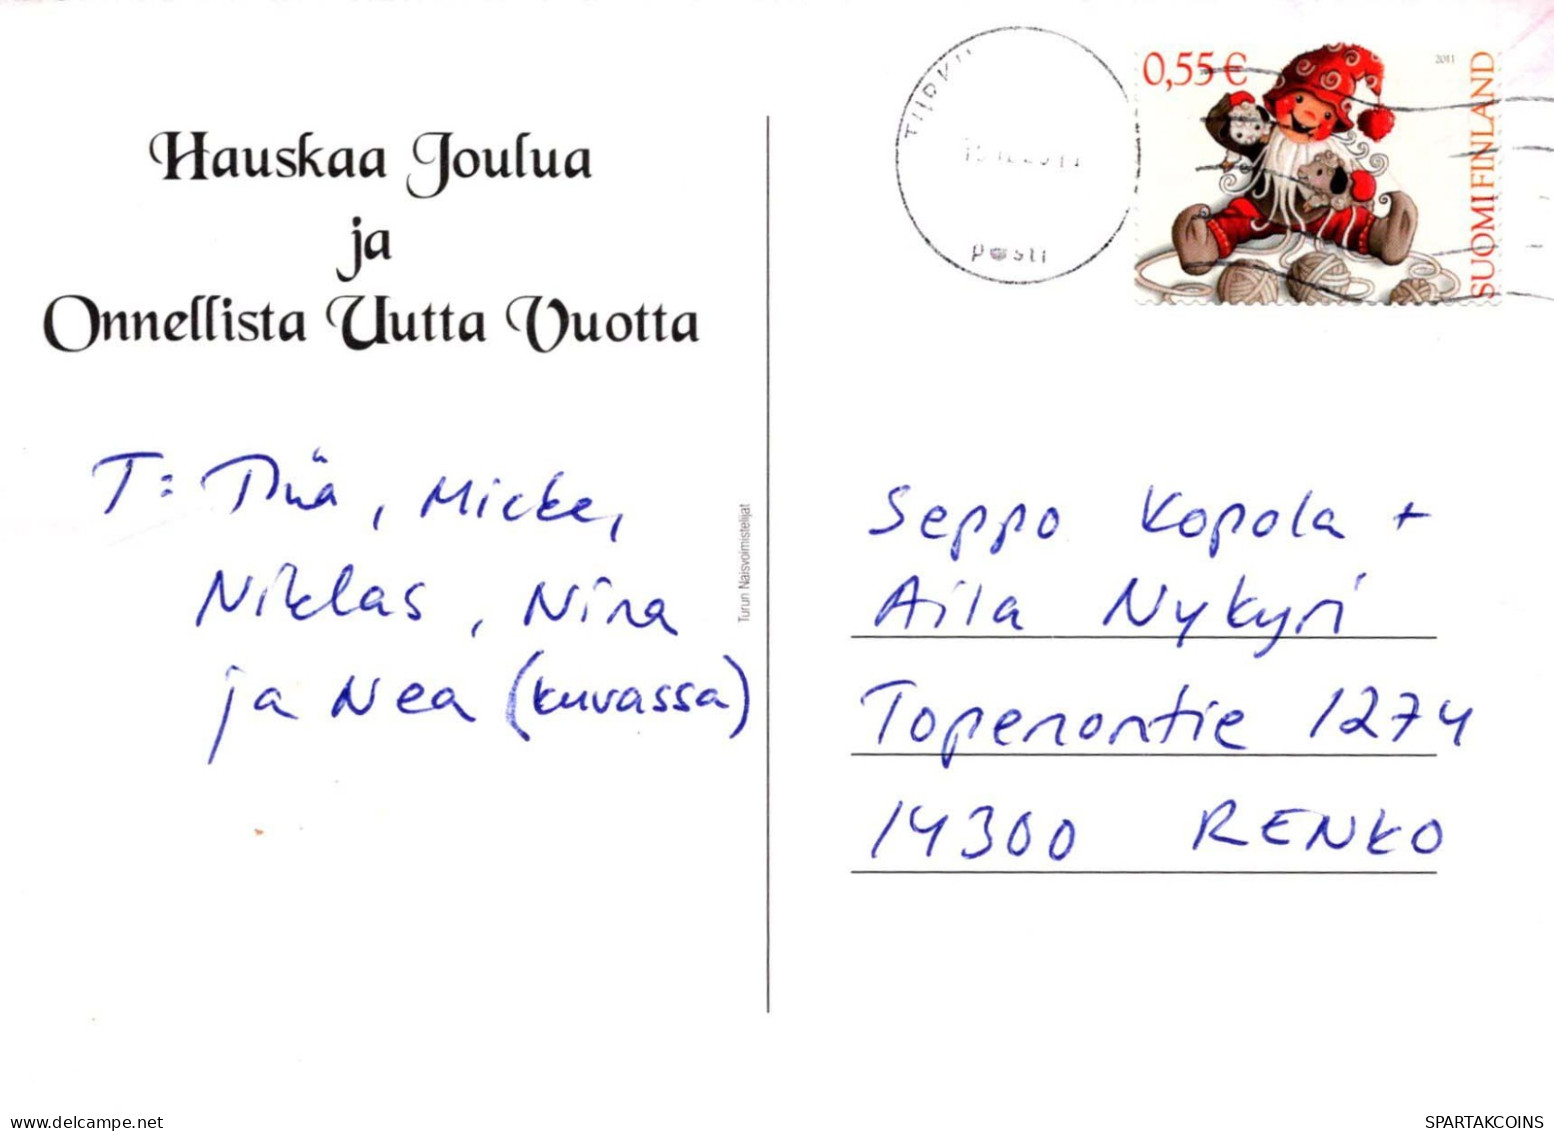 Hauskaa Joulua
ja
Onnellista Uutta Vuotta
T: Tiia, Micke,
Niklas, Nina
ja Nea (kuvassa)
Turun Naisvoimistelijat
TURKU
posti
0,55 €
2011
SUOMI FINLAND
Seppo Kopola +
Aila Nykyri
Topenontie 1274
14300 RENKO
delcampe.net
SPARTAKCOINS